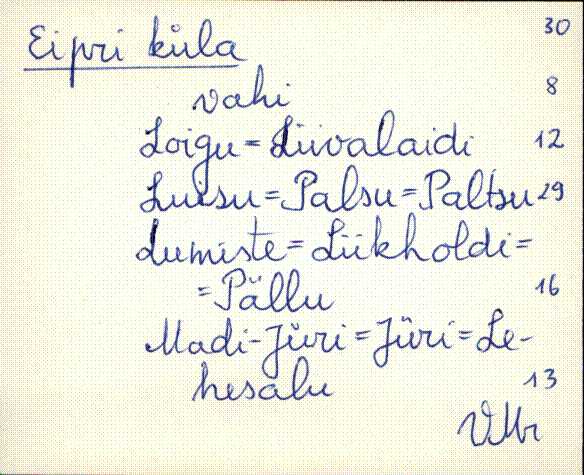 30
Eipri küla
vahi 8
Loigu = Liivalaidi 12
Luisu = Palsu = Paltsu 29
Lumiste = Liikholdi =
= Pällu 16
Madi-Jüri = Jüri = Le-
hesalu 13